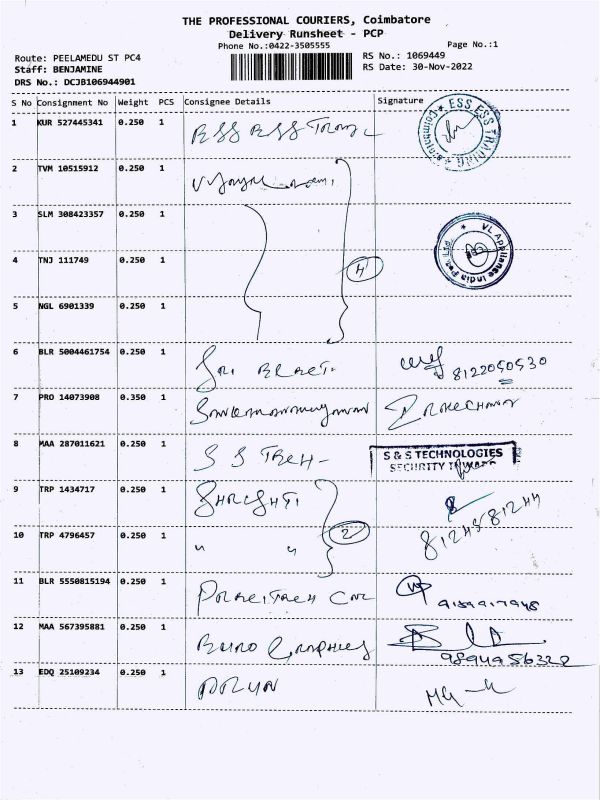 THE PROFESSIONAL COURIERS, Coimbatore
Delivery Runsheet - PCP
Phone No.:0422-3505555
Page No.:1
Route: PEELAMEDU ST PC4
RS No.: 1069449
Staff: BENJAMINE
RS Date: 30-Nov-2022
DRS No.: DCJB106944901
S No Consignment No Weight PCS Consignee Details Signature
1 KUR 527445341 0.250 1
ESS ESS TRADING
Coimbatore
2 TVM 10515912 0.250 1
3 SLM 308423357 0.250 1
VL Appliance India Pvt. Ltd.
4 TNJ 111749 0.250 1 4
5 NGL 6901339 0.250 1
6 BLR 5004461754 0.250 1 8122050530
7 PRO 14073908 0.350 1
8 MAA 287011621 0.250 1 S S TECH
S & S TECHNOLOGIES
SECURITY
9 TRP 1434717 0.250 1
10 TRP 4796457 0.250 1 " " 2 8124581244
11 BLR 5550815194 0.250 1
12 MAA 567395881 0.250 1 Graphics
9894956328
13 EDQ 25109234 0.250 1 ARUN